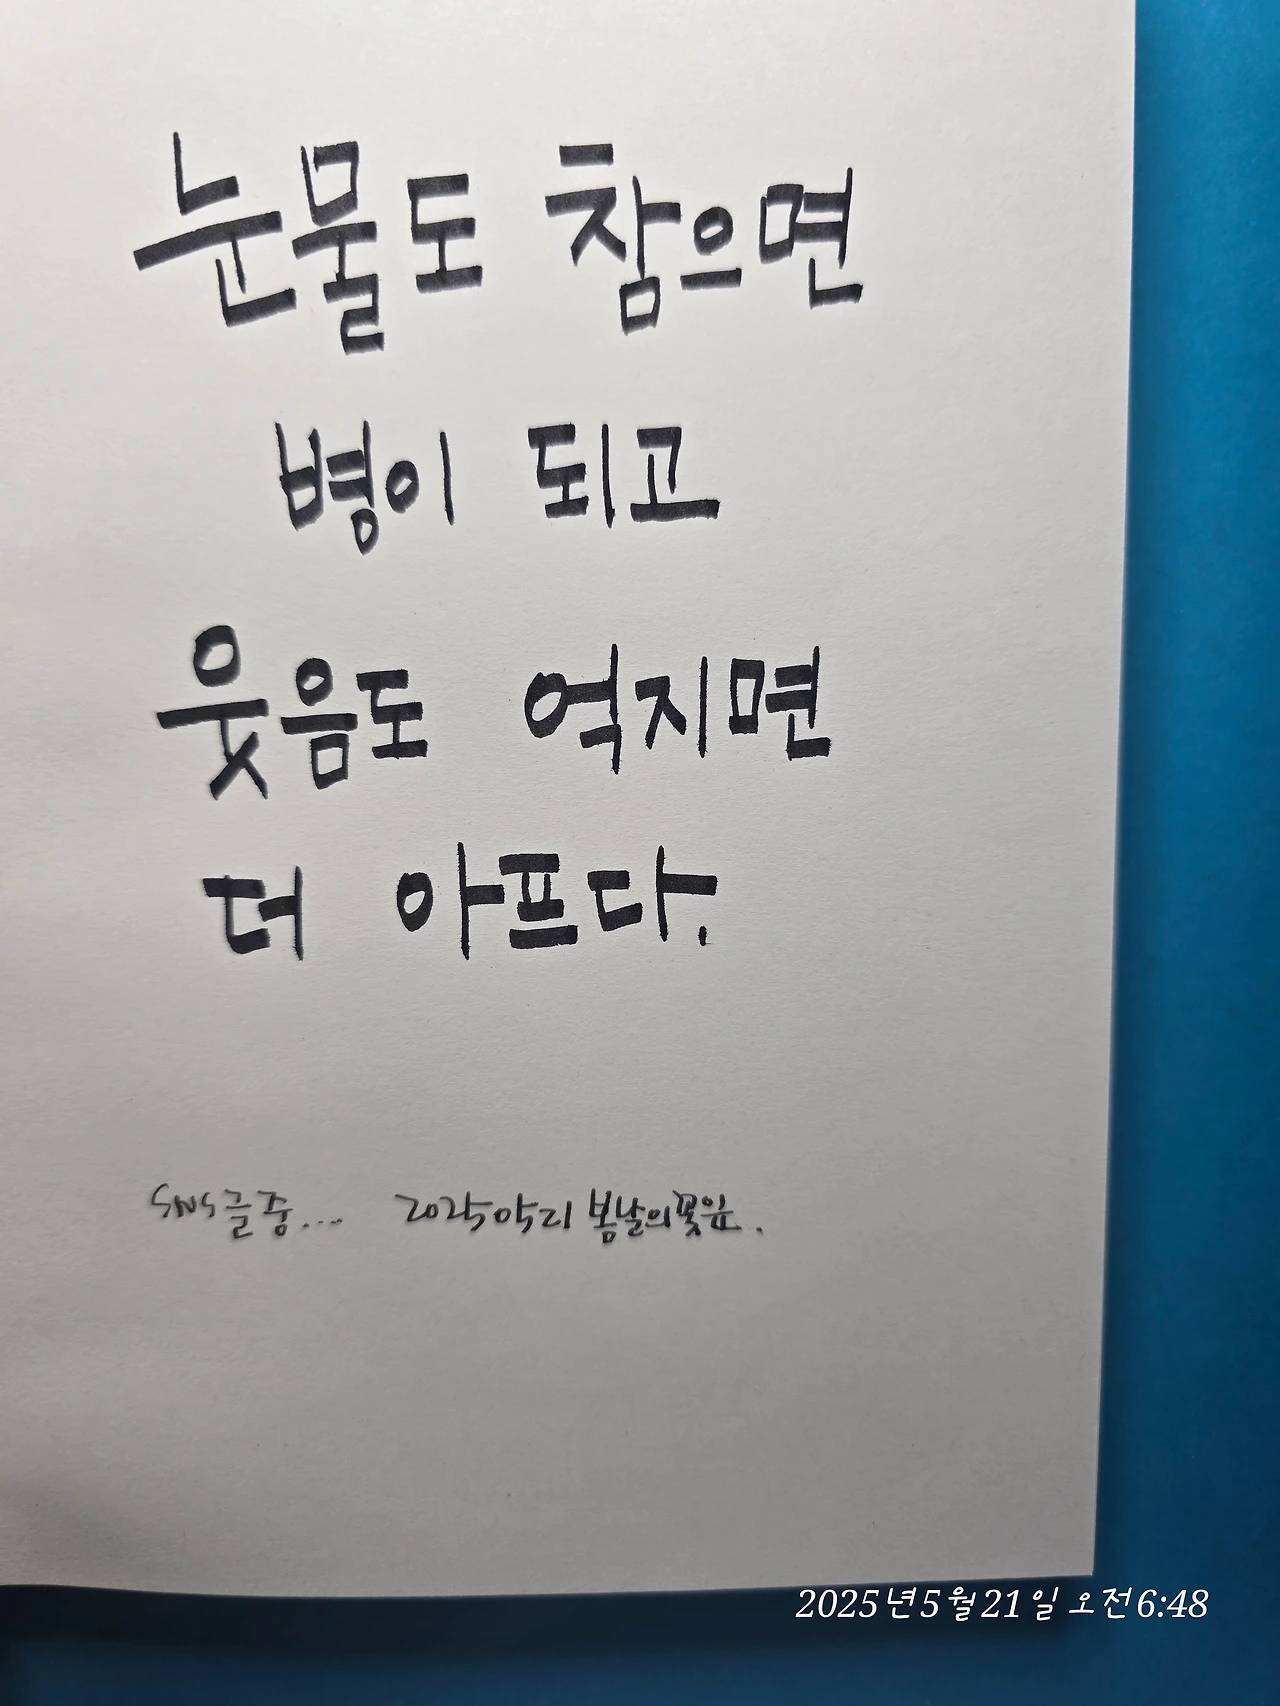 눈물도 참으면
병이 되고
웃음도 억지면
더 아프다.
SNS글중... 2025 봄날의꽃잎.
2025년5월21일 오전6:48